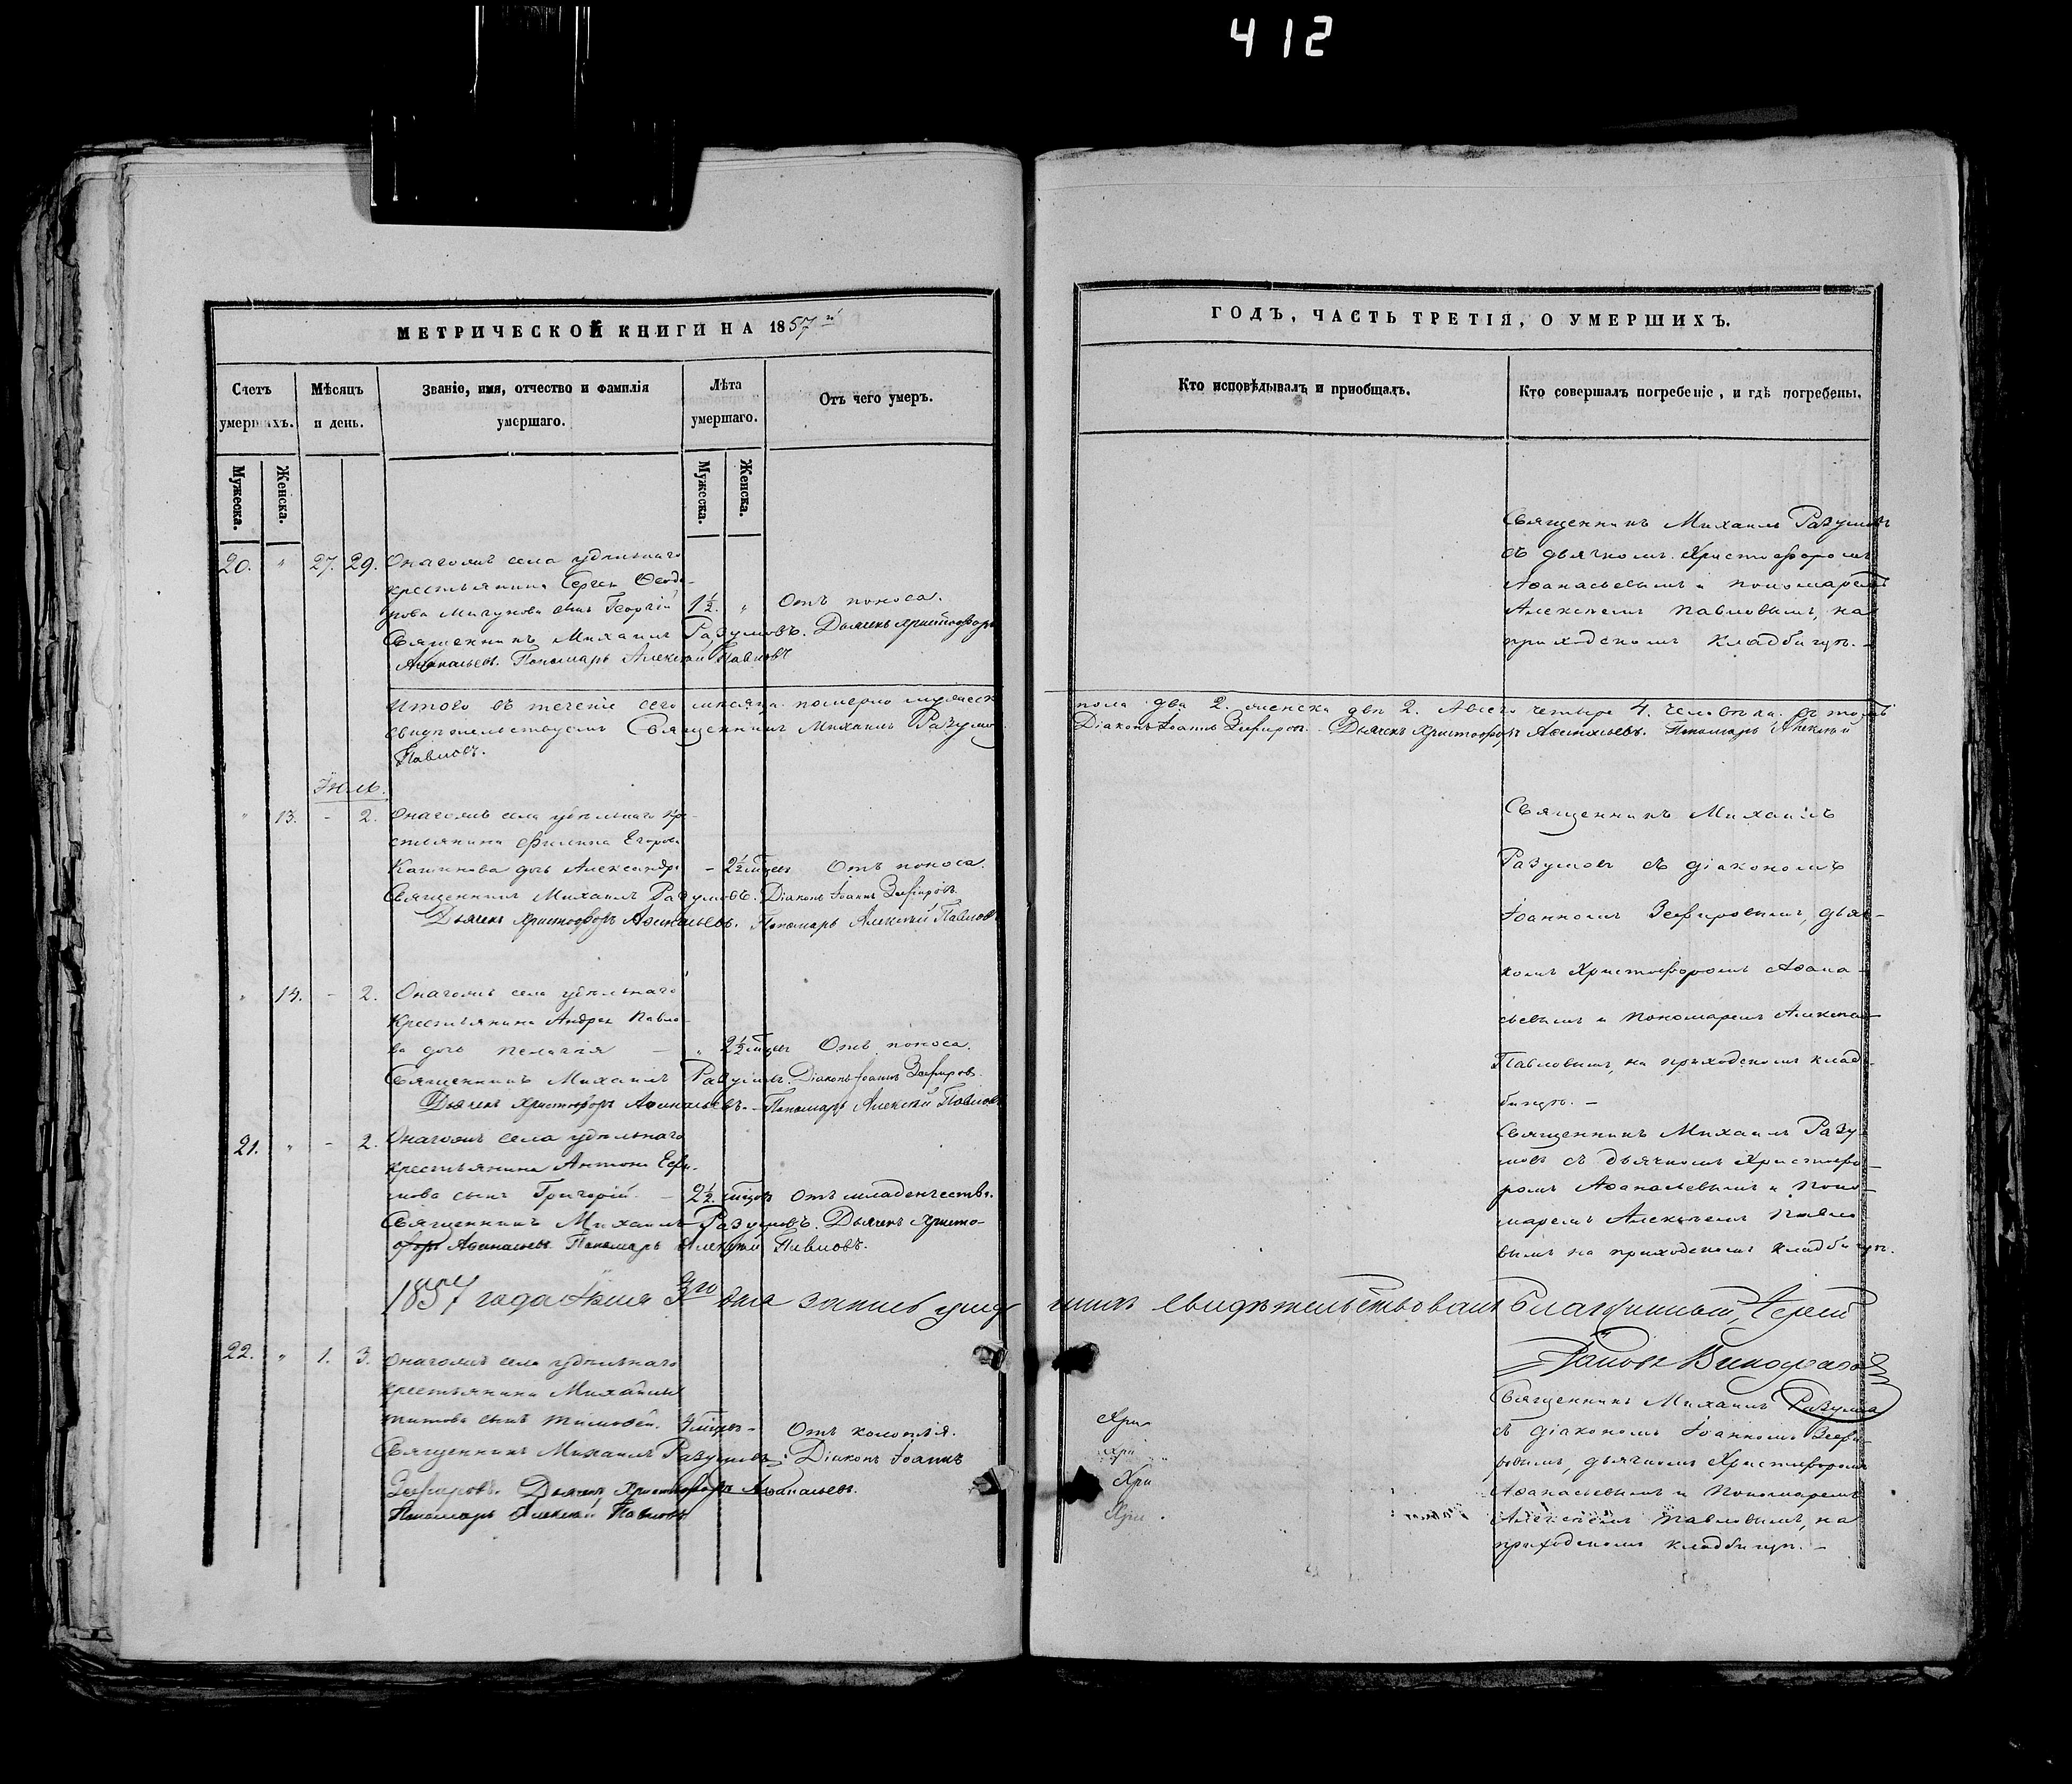 412
МЕТРИЧЕСКОЙ КНИГИ НА 1857й
ГОДЪ, ЧАСТЬ ТРЕТІЯ, О УМЕРШИХЪ.
Счетъ умершихъ.
Мѣсяцъ и день.
Званіе, имя, отчество и фамилія умершаго.
Лѣта умершаго.
Отъ чего умеръ.
Кто исповѣдывалъ и приобщалъ.
Кто совершалъ погребеніе, и гдѣ погребены.
Мужеска.
Женска.
Мужеска.
Женска.
20. " 27. 29. Онагожъ села удѣльнаго
крестьянина Сергея
сынъ Георгій 1½. " Отъ поноса.
Священникъ Михаилъ Разумовъ. Дьячекъ Христофоръ
Аѳанасьевъ. Пономарь Алексѣй Павловъ
Священникъ Михаилъ Разумовъ
съ дьячкомъ Христофоромъ
Аѳанасьевымъ и пономаремъ
Алексѣемъ Павловымъ, на
приходскомъ кладбищѣ. –
Итого въ теченіе сего мѣсяца померло мужеска пола два 2. женска двѣ 2. Всего четыре 4. человѣка. въ томъ
свидѣтельствуемъ Священникъ Михаилъ Разумовъ Діаконъ Іоаннъ Зефировъ. Дьячекъ Христофоръ Аѳанасьевъ. Пономарь Алексѣй
Павловъ.
Іюль.
" 13. - 2. Онагожъ села удѣльнаго кре-
стьянина Филипа Егорова
дочь Александра – 2½ мѣсц Отъ поноса.
Священникъ Михаилъ Разумовъ. Діаконъ Іоаннъ Зефировъ.
Дьячекъ Христофоръ Аѳанасьевъ. Пономарь Алексѣй Павловъ
Священникъ Михаилъ
Разумовъ съ діакономъ
Іоанномъ Зефировымъ, дьяч-
комъ Христофоромъ Аѳана-
сьевымъ и пономаремъ Алексѣем
Павловымъ, на приходскомъ клад-
бищѣ. –
" 14. - 2. Онагожъ села удѣльнаго
крестьянина Андрея Павло-
ва дочь Пелагія – " 2½ мѣсц Отъ поноса.
Священникъ Михаилъ Разумовъ. Діаконъ Іоаннъ Зефировъ.
Дьячекъ Христофоръ Аѳанасьевъ. – Пономарь Алексѣй Павловъ
21. " - 2. Онагожъ села удѣльнаго
крестьянина Антона Ефи-
мова сынъ Григорій. – 2½. мѣсц Отъ младенчества.
Священникъ Михаилъ Разумовъ. Дьячекъ Христо-
форъ Аѳанасьевъ. Пономарь Алексѣй Павловъ.
Священникъ Михаилъ Разу-
мовъ съ дьячкомъ Христофо-
ромъ Аѳанасьевымъ и поно-
маремъ Алексѣемъ Павло
вымъ на приходскомъ кладбищѣ.
1857 года Іюля 3го дня запись умершихъ свидѣтельствовалъ Благочинный, Іерей
Іаковъ Виноградовъ
22. " 1. 3. Онагожъ села удѣльнаго
крестьянина Михайлы
Титова сынъ Тимоѳей. мѣсц - Отъ колотья.
Священникъ Михаилъ Разумовъ. Діаконъ Іоаннъ
Зефировъ. Дьячекъ Христофоръ Аѳанасьевъ.
Пономарь Алексѣй Павловъ
Хри
Хри
Хри
Хри
Священникъ Михаилъ Разумовъ
съ діакономъ Іоанномъ Зефи-
ровымъ, дьячкомъ Христофоромъ
Аѳанасьевымъ и пономаремъ
Алексѣемъ Павловымъ, на
приходскомъ кладбищѣ. –